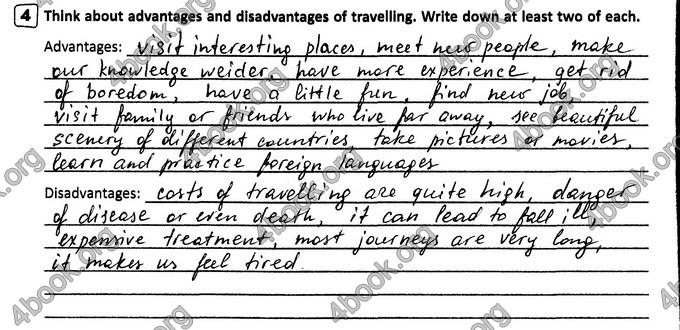 4 Think about advantages and disadvantages of travelling. Write down at least two of each.
Advantages: visit interesting places, meet new people, make
our knowledge weider, have more experience, get rid
of boredom, have a little fun, find new job,
visit family or friends who live far away, see beautiful
scenery of different countries, take pictures or movies,
learn and practice foreign languages
Disadvantages: costs of travelling are quite high, danger
of disease or even death, it can lead to fall ill,
expensive treatment, most journeys are very long,
it makes us feel tired.
4book.org